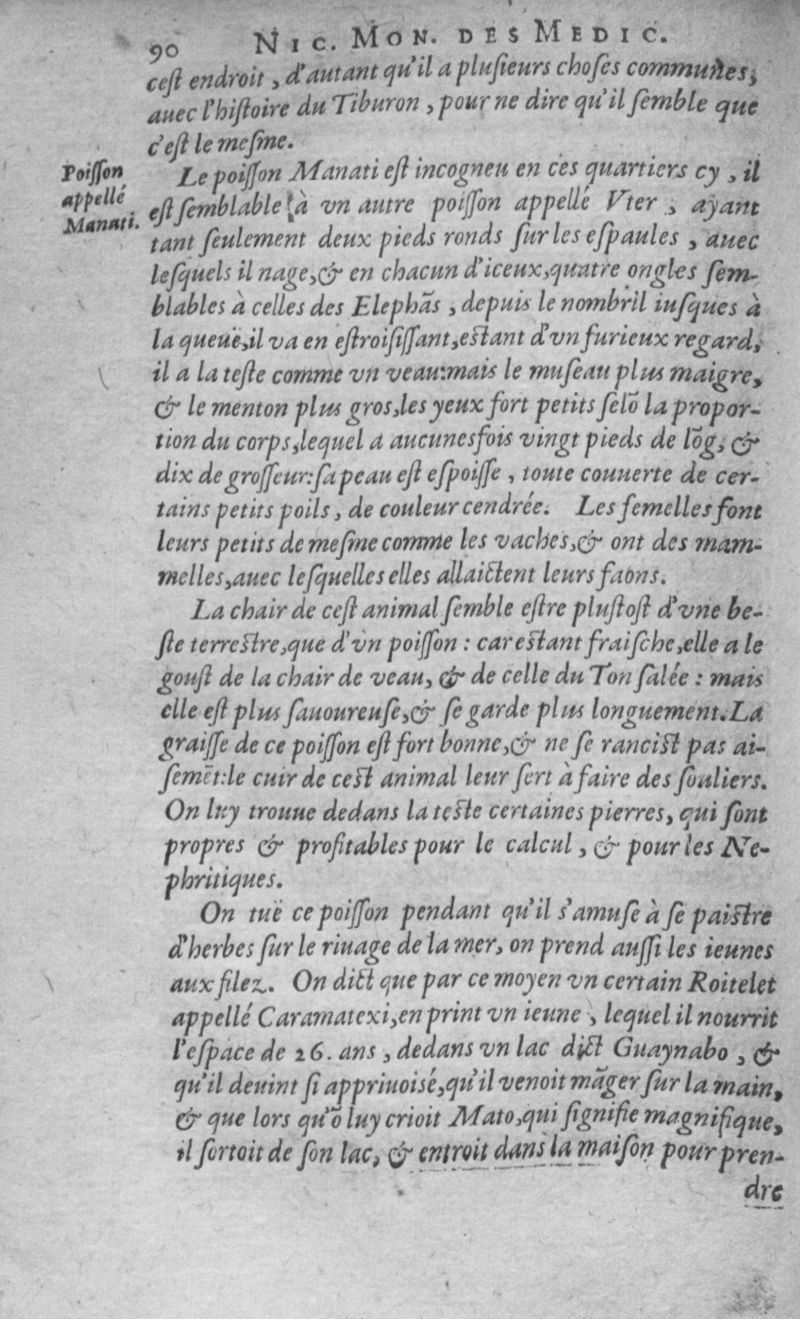 90 NIC. MON. DES MEDIC.
cest endroit, d'autant qu'il a plusieurs choses communes,
auec l'histoire du Tiburon, pour ne dire qu'il semble que
c'est le mesme.
Poisson
appellé
Manati.
Le poisson Manati est incogneu en ces quartiers cy, il
est semblable à vn autre poisson appellé Vter, ayant
tant seulement deux pieds ronds sur les espaules, auec
lesquels il nage, & en chacun d'iceux, quatre ongles sem-
blables à celles des Elephãs, depuis le nombril iusques à
la queuë, il va en estroisissant, estant d'vn furieux regard,
il a la teste comme vn veau: mais le museau plus maigre,
& le menton plus gros, les yeux fort petits selõ la propor-
tion du corps, lequel a aucunesfois vingt pieds de lõg, &
dix de grosseur: sa peau est espoisse, toute couuerte de cer-
tains petits poils, de couleur cendrée. Les femelles font
leurs petits de mesme comme les vaches, & ont des mam-
melles, auec lesquelles elles allaictent leurs faons.
La chair de cest animal semble estre plustost d'vne be-
ste terrestre, que d'vn poisson: car estant fraische, elle a le
goust de la chair de veau, & de celle du Ton salée: mais
elle est plus sauoureuse, & se garde plus longuement. La
graisse de ce poisson est fort bonne, & ne se rancist pas ai-
semẽt: le cuir de cest animal leur sert à faire des souliers.
On luy trouue dedans la teste certaines pierres, qui sont
propres & profitables pour le calcul, & pour les Ne-
phritiques.
On tuë ce poisson pendant qu'il s'amuse à se paistre
d'herbes sur le riuage de la mer, on prend aussi les ieunes
aux filez. On dict que par ce moyen vn certain Roitelet
appellé Caramatexi, en print vn ieune, lequel il nourrit
l'espace de 26. ans, dedans vn lac dict Guaynabo, &
qu'il deuint si appriuoisé, qu'il venoit mãger sur la main,
& que lors qu'õ luy crioit Mato, qui signifie magnifique,
il sortoit de son lac, & entroit dans la maison pour pren-
dre